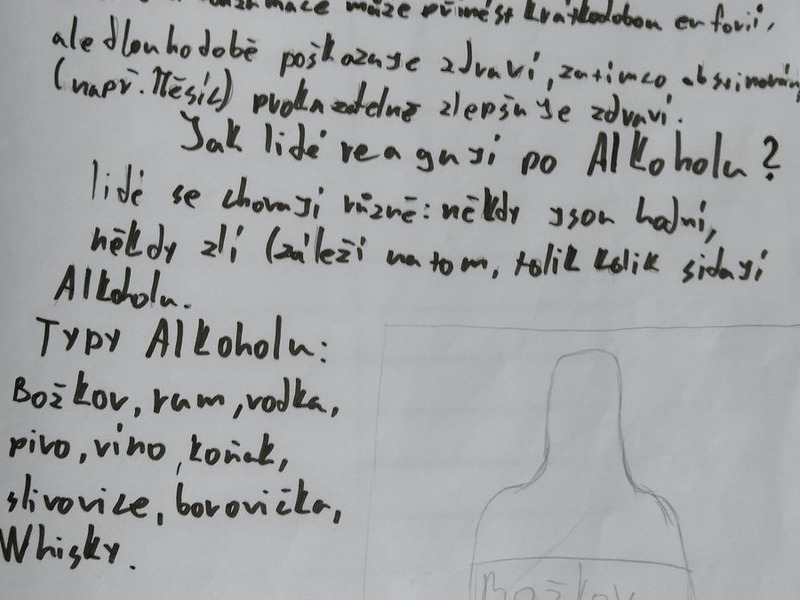 může přinést krátkodobou euforii,
ale dlouhodobě poškozuje zdraví, zatímco
(např. Měsíc) prokazatelně zlepšuje zdraví.
Jak lidé reagují po Alkoholu?
lidé se chovají různě: někdy json hodní,
někdy zlí (záleží na tom, tolik kolik sidají
Alkoholu.
Typy Alkoholu:
Božkov, rum, vodka,
pivo, víno, koňak,
slivovice, borovička,
Whisky.
Božkov